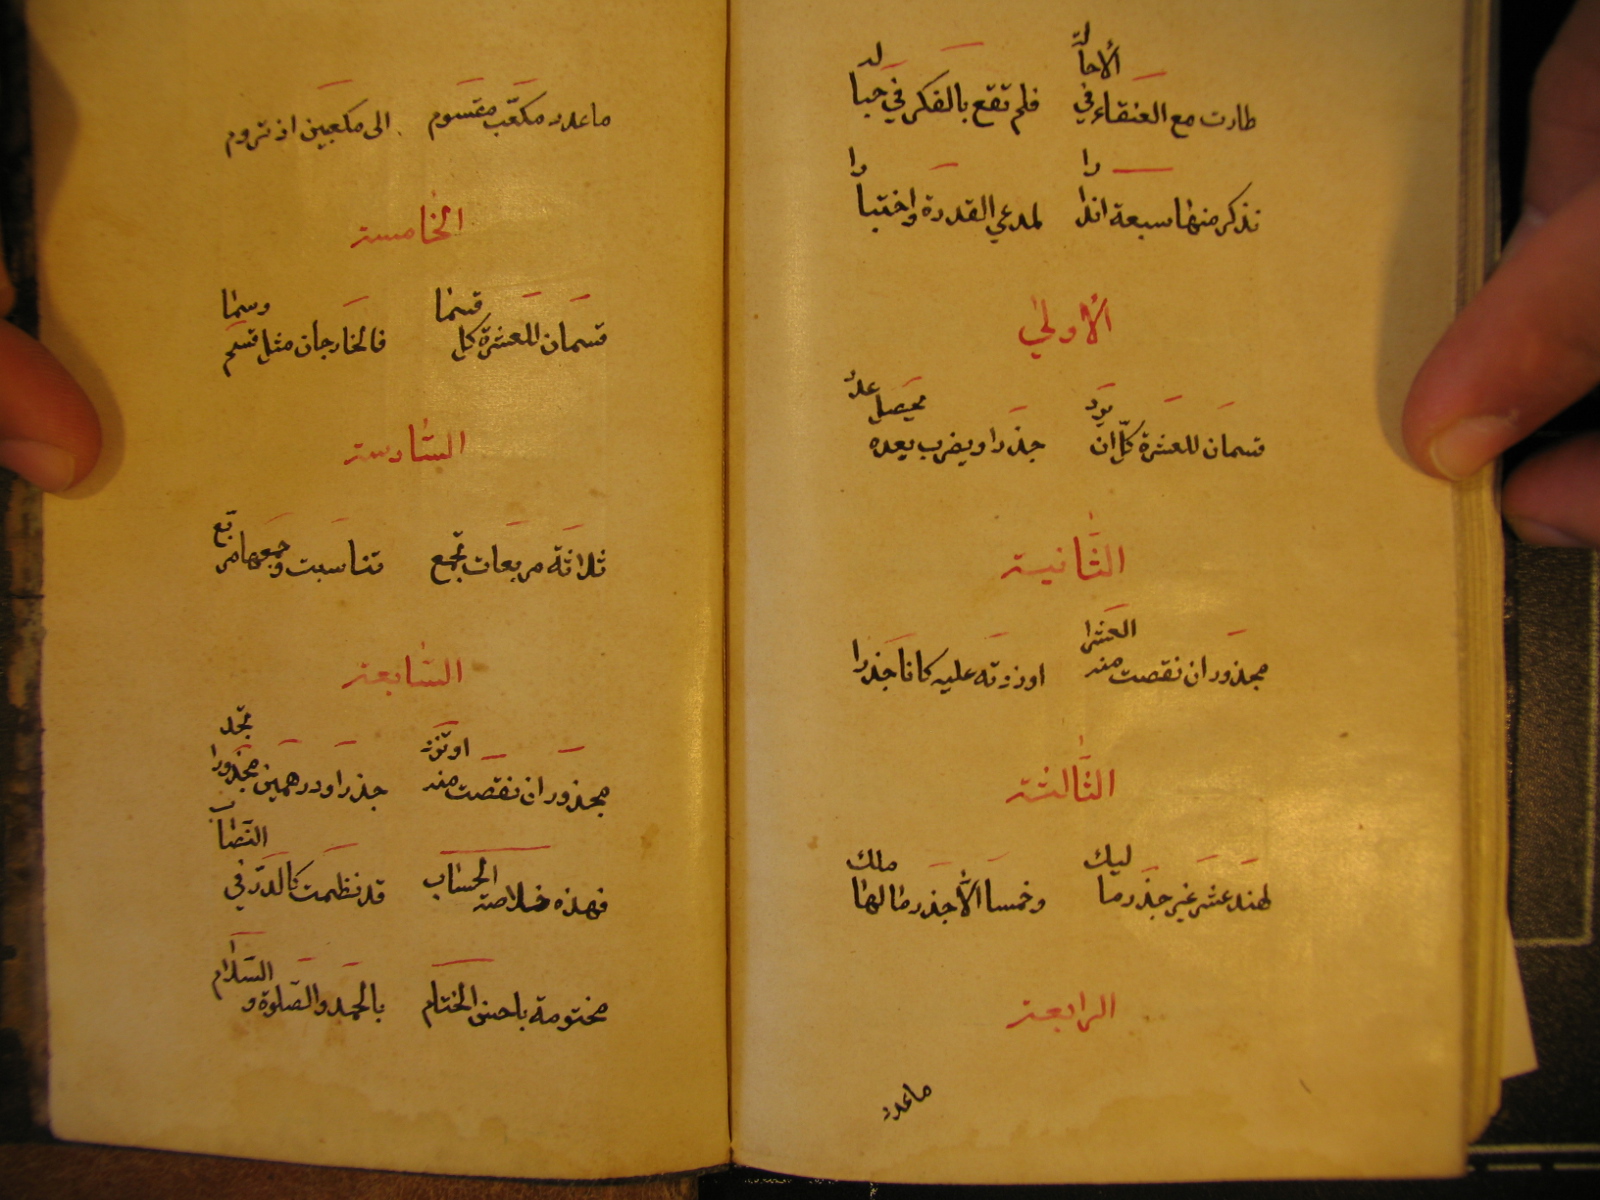 طارت مع العنقاء في الاحا لة فلم تقع بالفكر في حبا له
نذكر منها سبعة انذا را لمدعي القدرة واختبا را
الأولى
قسمان للعشرة كل ان يزد جذرا ويضرب يعده محصل عدد
الثانية
مجذور ان نقصت منه العشرا او زدته عليه كانا جذرا
الثالثة
لهند عشر غير جذر ما ليك وخمسا الأجذر ما لها ملك
الرابعة
ما عدد
ما عدد مكعب مقسوم الى مكعبين اذ تروم
الخامسة
قسمان للعشرة كل قسما فالخارجان مثل قسم وسما
السادسة
ثلاثة مربعات تجمع تناسبت وجمعها مربع
السابعة
مجذور ان نقصت منه او تزد جذرا ودرهمين مجذورا تجد
فهذه خلاصة الحساب قد نظمت كالدر في النصاب
مختومة باحسن الختام بالحمد والصلوة والسلام